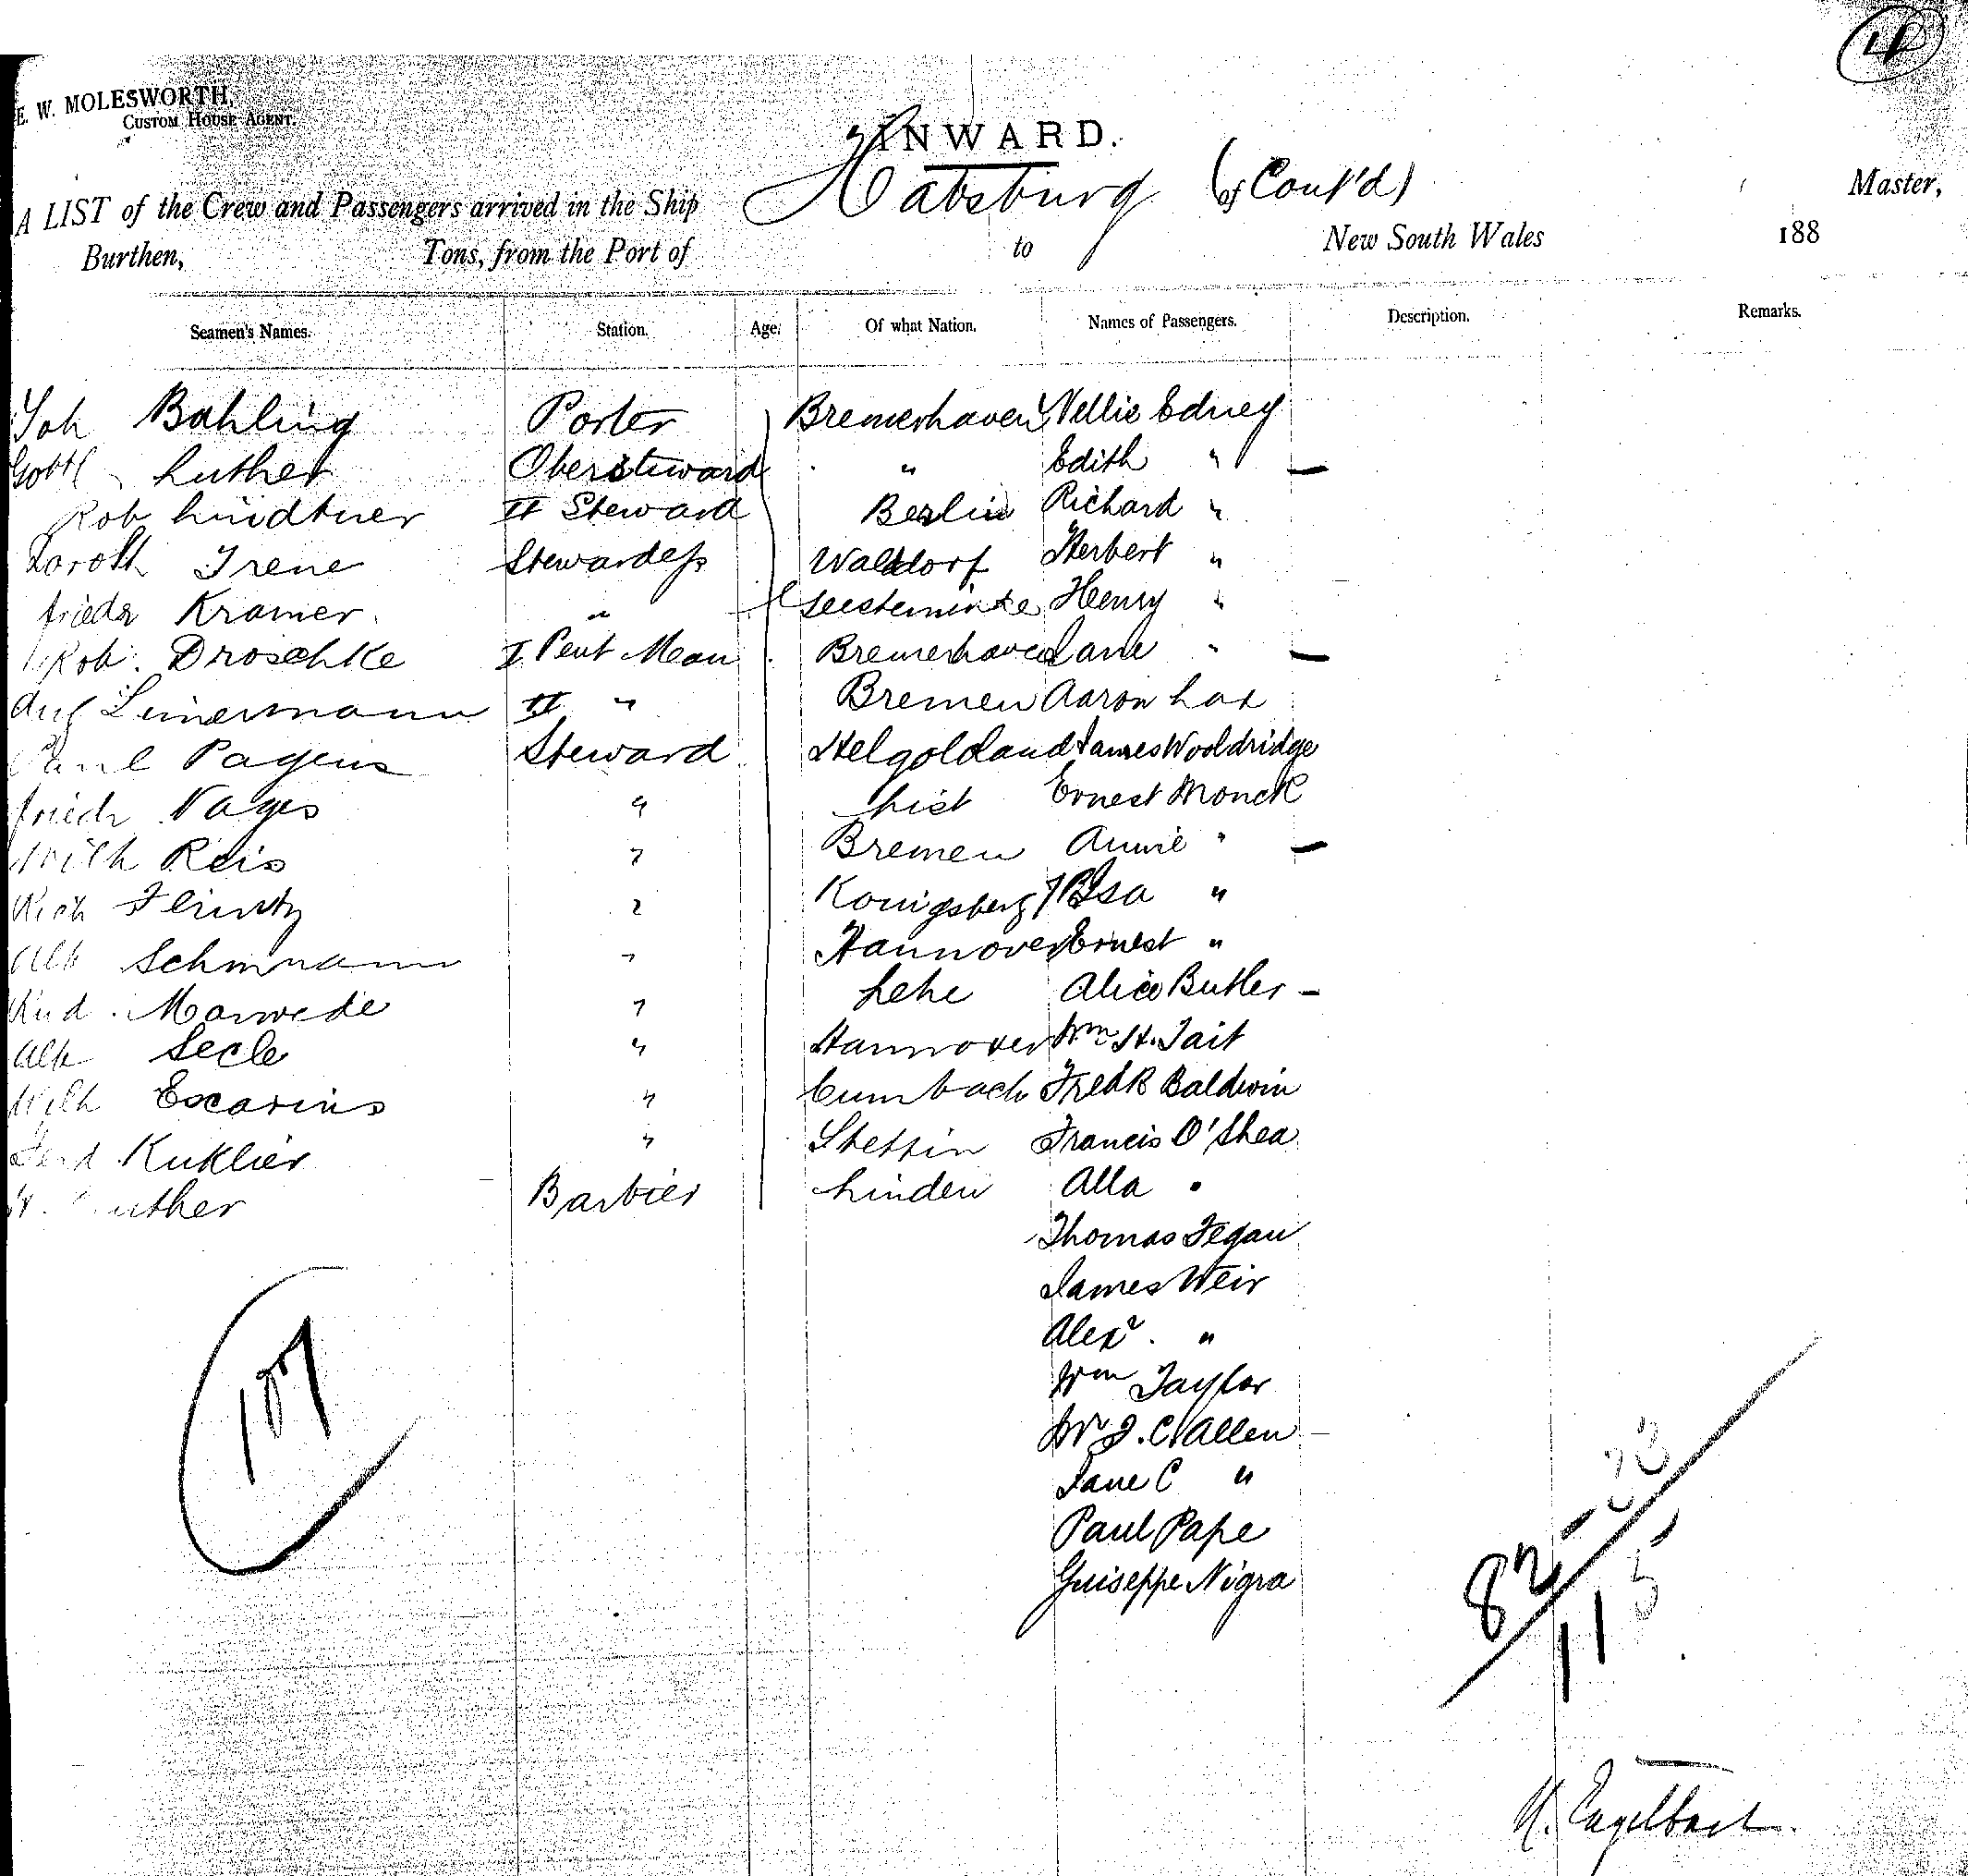 4
E. W. MOLESWORTH,
CUSTOM HOUSE AGENT.
INWARD.
A LIST of the Crew and Passengers arrived in the Ship Habsburg (of Cont'd) Master,
Burthen, Tons, from the Port of to New South Wales 188
Seamen's Names. Station. Age. Of what Nation. Names of Passengers. Description. Remarks.
Joh Bahling Porter Bremerhaven Nellie Edney
Gottl Luther Obersteward " Edith " —
Rob Lindtner II Steward Berlin Richard "
Doroth Irene Stewardess Walldorf Herbert "
Friedr Kramer " Geestemünde Henry "
Rob. Droschke I Pent Man Bremerhaven Jane " —
Aug II " Bremen Aaron Lax
Paul Pagens Steward Helgoland James Wooldridge
Friedr Nages " List Ernest Monck
Wilh Reis " Bremen Annie " —
Rich " Konigsberg Elsa "
Alb " Hannover Ernest "
Rud. Marwede " Lehe Alice Butler —
Alb Secle " Hannover Wm H. Tait
Wilh Escarins " Cumbach Fredk Baldwin
Ferd Kuklier " Stettin Francis O'Shea
Luther Barbier Linden Alla "
Thomas Fegan
James Weir
Alexr. "
Wm Taylor
Dr J. C. Allen
Jane C "
Paul Pape
Guiseppe Nigra
107
82
115
H. Engelbart.